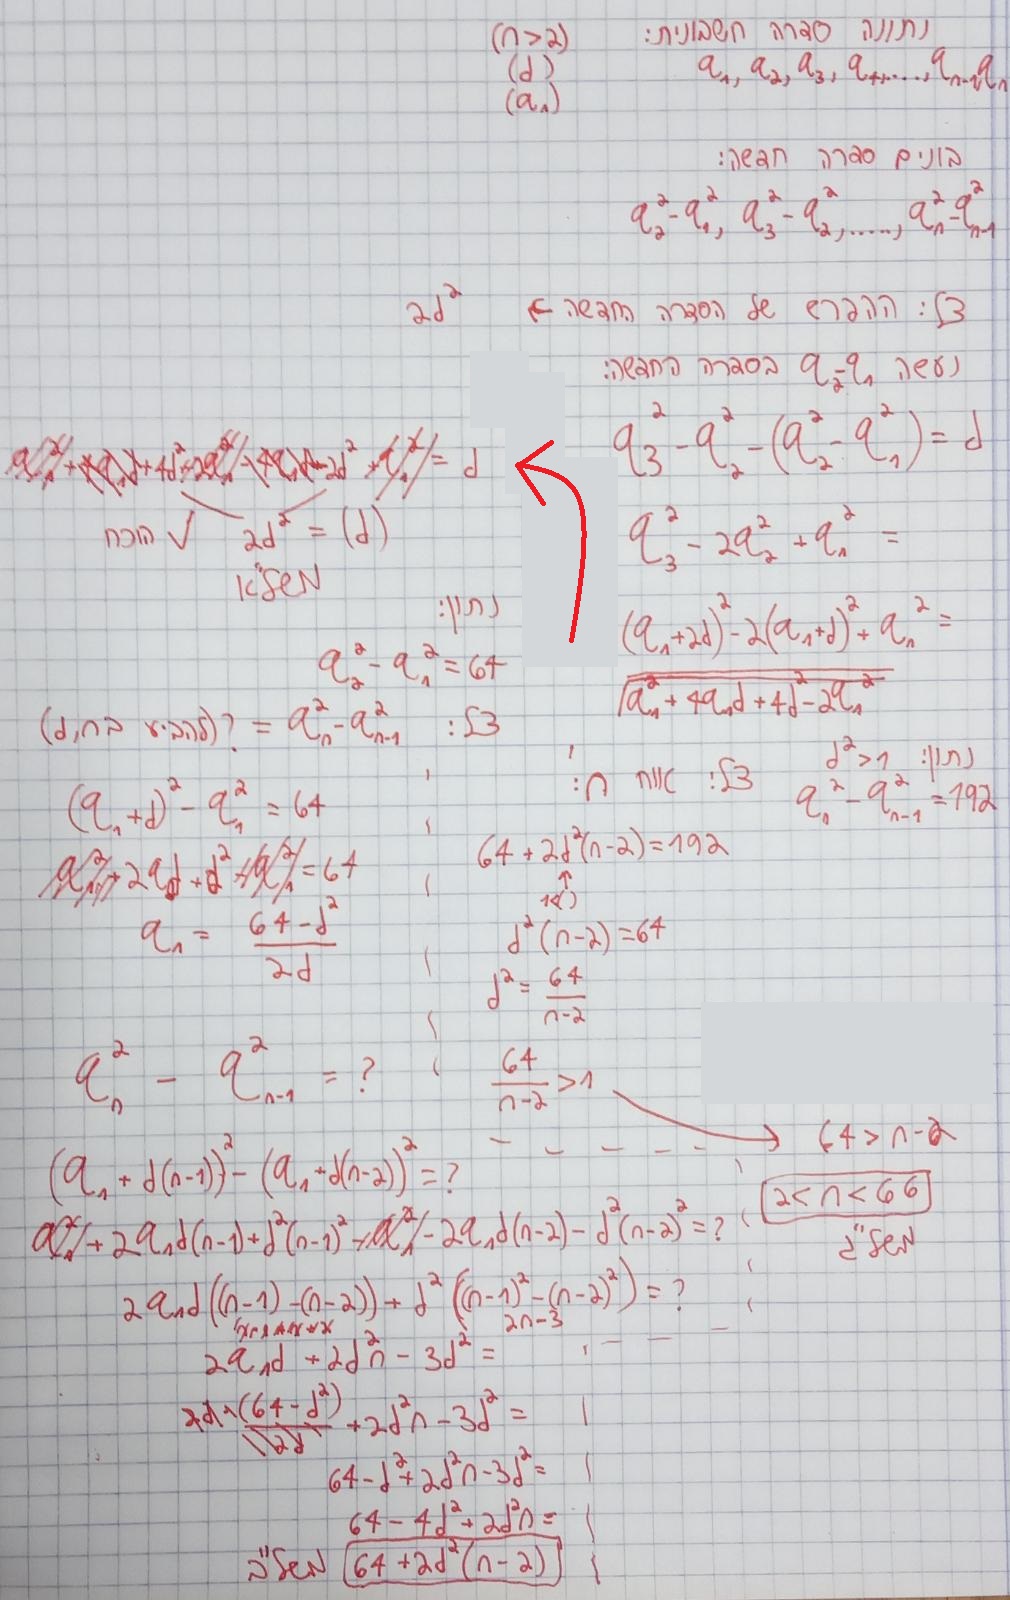 נתונה סדרה חשבונית: (n>2)
a₁, a₂, a₃, a₄, ...., aₙ₋₁, aₙ (d)
(a₁)
בונים סדרה חדשה:
a₂²-a₁², a₃²-a₂², ....., aₙ²-aₙ₋₁²
צ"ל: ההפרש של הסדרה החדשה ← 2d²
נעשה a₂-a₁ בסדרה החדשה:
a₃²-a₂²-(a₂²-a₁²)=d
a₃²-2a₂²+a₁²=
(a₁+2d)²-2(a₁+d)²+a₁²=
a₁²+4a₁d+4d²-2a₁²
a₁²+4a₁d+4d²-2a₁²-4a₁d-2d²+a₁²=d
2d²=(d) ✓ הוכח
מש"ל א
נתון:
a₂²-a₁²=64
צ"ל: aₙ²-aₙ₋₁²=? (להביע ב n,d)
(a₁+d)²-a₁²=64
a₁²+2a₁d+d²-a₁²=64
a₁=(64-d²)/2d
aₙ²-aₙ₋₁²=?
(a₁+d(n-1))²-(a₁+d(n-2))²=?
a₁²+2a₁d(n-1)+d²(n-1)²-a₁²-2a₁d(n-2)-d²(n-2)²=?
2a₁d((n-1)-(n-2))+d²((n-1)²-(n-2)²)=?
2n-3
2a₁d+2d²n-3d²=
2d·(64-d²)/2d+2d²n-3d²=
64-d²+2d²n-3d²=
64-4d²+2d²n=
64+2d²(n-2) מש"ל ב
נתון: d²>1
aₙ²-aₙ₋₁²=192
צ"ל: n
64+2d²(n-2)=192
↑
d²(n-2)=64
d²=64/(n-2)
64/(n-2)>1
64>n-2
2<n<66
מש"ל